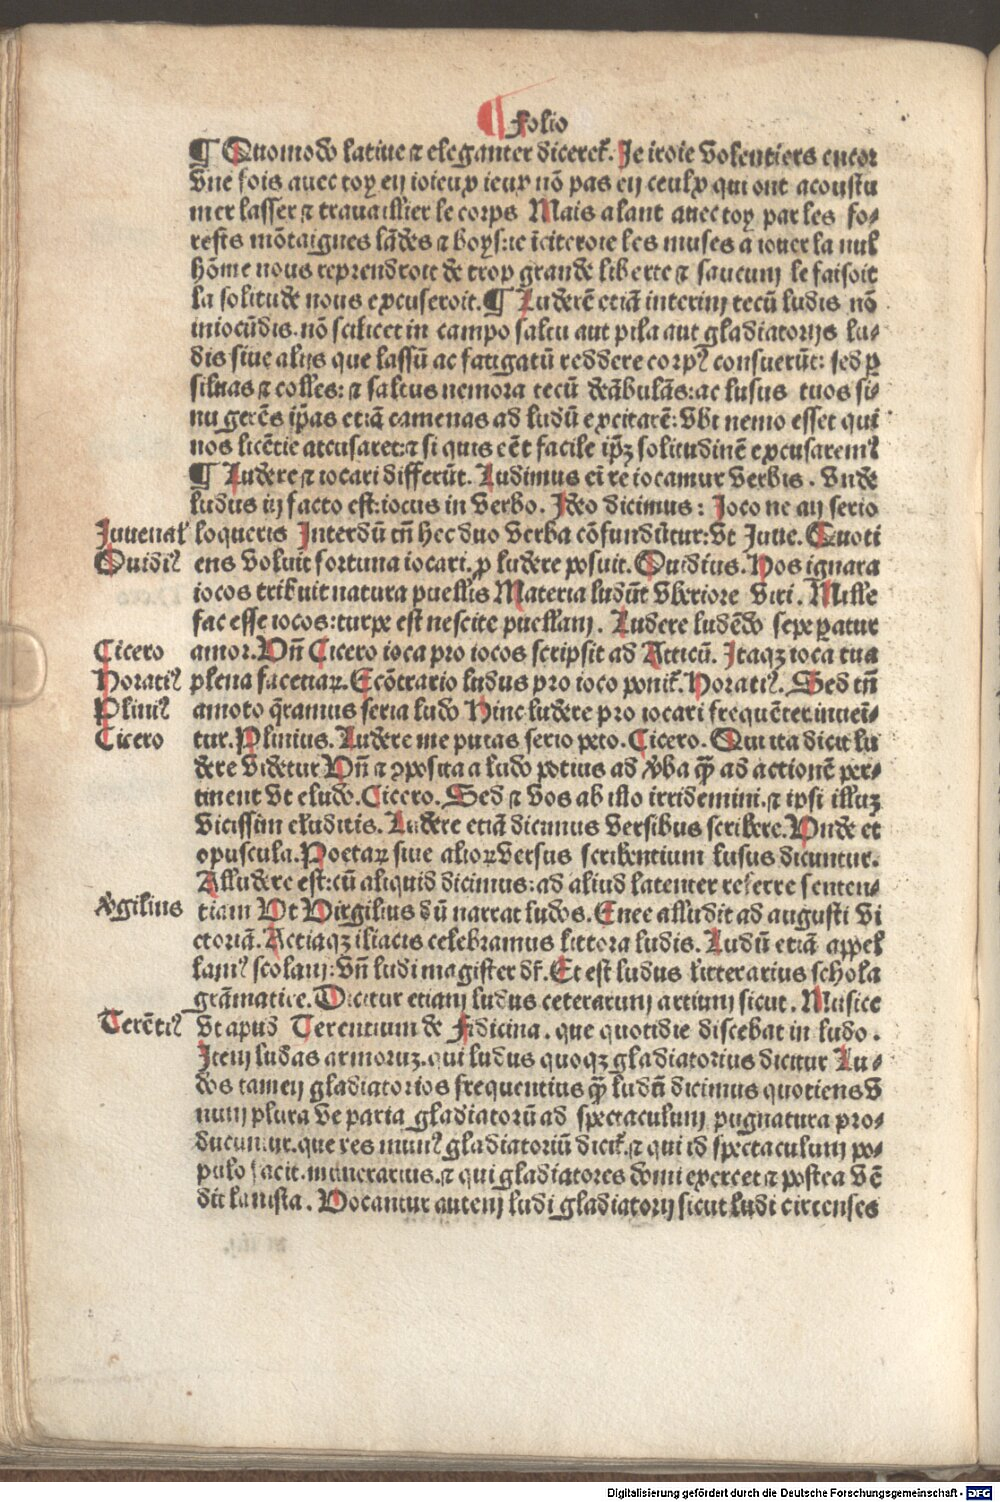 ¶ Folio
¶ Quomodo latine ⁊ eleganter diceret᷑. Je iroie volentiers encor
vne fois auec toy en ioieux ieux nō pas en ceulx qui ont acoustu
mer lasser ⁊ trauaillier le corps Mais alant auec toy par les fo⸗
rests mōtaignes lādes ⁊ boys:ie īciteroie les muses a iouer la nul
hōme nous reprendroit de trop grande liberte ⁊ saucun le faisoit
la solitude nous excuseroit. ¶ Luderē etiā interim tecū ludis nō
iniocūdis. nō scilicet in campo saltu aut pila aut gladiatorijs lu⸗
dis siue alijs que lassū ac fatigatū reddere corpꝰ consuerūt: sed ꝑ
siluas ⁊ colles: ⁊ saltus nemora tecū deābulās: ac lusus tuos si⸗
nu gerēs ip̄as etiā camenas ad ludū excitarē: vbi nemo esset qui
nos licētie accusaret: ⁊ si quis eēt facile ip̄ꝫ solitudinē excusaremꝰ
¶ Ludere ⁊ iocari differūt. Ludimus em̄ re iocamur verbis. Unde
ludus in facto est: iocus in verbo. Ideo dicimus: Ioco ne an serio
Juuenal᷑ loqueris Interdū tn̄ hec duo verba cōfundūtur: vt Juue. Quoti
Ouidiꝰ ens voluit fortuna iocari. ꝓ ludere posuit. Ouidius. Nos ignara
iocos tribuit natura puellis Materia ludūt vberiore viri. Mille
fac esse iocos: turpe est nescire puellam. Ludere ludēdo sepe ꝑatur
Cicero amor. Un̄ Cicero ioca pro iocos scripsit ad Atticū. Itaqꝫ ioca tua
Horatiꝰ plena facetiaꝝ. Ecōtrario ludus pro ioco ponit᷑. Horatiꝰ. Sed tn̄
Pliniꝰ amoto q̄ramus seria ludo Hinc ludere pro iocari frequēter inueī⸗
Cicero tur. Plinius. Ludere me putas serio peto. Cicero. Qui ita dicit lu
dere videtur Un̄ ⁊ ꝯposita a ludo potius ad v̄ba qͣꝫ ad actionē per⸗
tinent vt eludo. Cicero. Sed ⁊ vos ab illo irridemini. ⁊ ipsi illuꝫ
vicissim eluditis. Ludere etiā dicimus versibus scribere. Unde et
opuscula. Poetaꝝ siue alioꝝ versus scribentium lusus dicuntur.
Alludere est: cū aliquid dicimus: ad aliud latenter referre senten⸗
v̄gilius tiam Ut Virgilius dū narrat ludos. Enee alludit ad augusti vi
ctoriā. Actiaqꝫ iliacis celebramus littora ludis. Ludū etiā appel
lamꝰ scolam: vn̄ ludi magister dr̄. Et est ludus litterarius schola
grāmatice. Dicitur etiam ludus ceterarum artium sicut. Musice
Terētiꝰ vt apud Terentium de Fidicina. que quotidie discebat in ludo.
Item ludas armoruꝫ. qui ludus quoqꝫ gladiatorius dicitur Lu⸗
dos tamen gladiatorios frequentius qͣꝫ ludū dicimus quotiens v
num plura ve paria gladiatorū ad spectaculum pugnatura pro⸗
ducuntur. que res munꝰ gladiatoriū dicit᷑. ⁊ qui id spectaculum po⸗
pulo facit. munerarius. ⁊ qui gladiatores domi exercet ⁊ postea vē
dit lanista. Vocantur autem ludi gladiatorij sicut ludi circenses
Digitalisierung gefördert durch die Deutsche Forschungsgemeinschaft - DFG